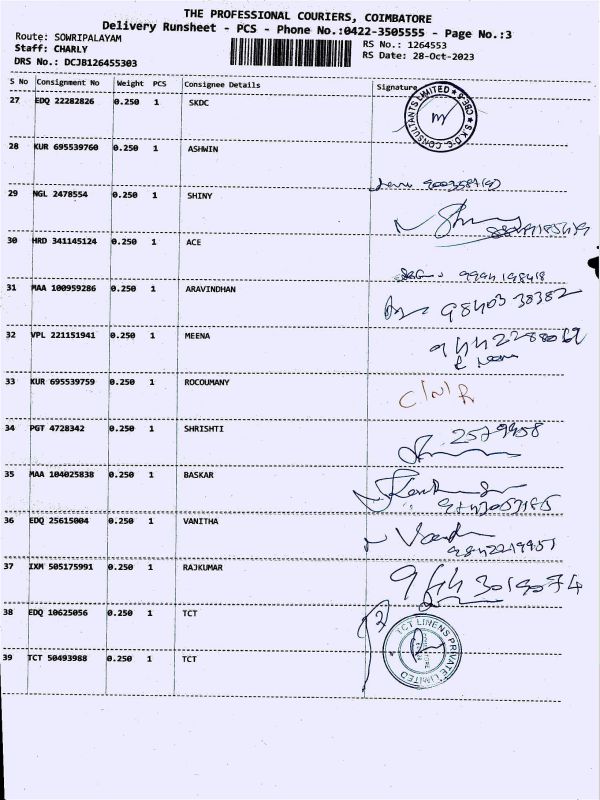 THE PROFESSIONAL COURIERS, COIMBATORE
Delivery Runsheet - PCS - Phone No.:0422-3505555 - Page No.:3
Route: SOWRIPALAYAM
RS No.: 1264553
Staff: CHARLY
RS Date: 28-Oct-2023
DRS No.: DCJB126455303
S No Consignment No Weight PCS Consignee Details Signature
27 EDQ 22282826 0.250 1 SKDC
S.K.D.C. CONSULTANTS LIMITED ★ CBE-6 ★
28 KUR 695539760 0.250 1 ASHWIN
29 NGL 2478554 0.250 1 SHINY
30 HRD 341145124 0.250 1 ACE
9994198418
31 MAA 100959286 0.250 1 ARAVINDHAN
98403 38382
32 VPL 221151941 0.250 1 MEENA
33 KUR 695539759 0.250 1 ROCOUMANY
C/N/R
34 PGT 4728342 0.250 1 SHRISHTI
2579958
35 MAA 104025838 0.250 1 BASKAR
36 EDQ 25615004 0.250 1 VANITHA
9842219951
37 IXM 505175991 0.250 1 RAJKUMAR
9443019074
38 EDQ 10625056 0.250 1 TCT
TCT LINENS PRIVATE LIMITED
39 TCT 50493988 0.250 1 TCT